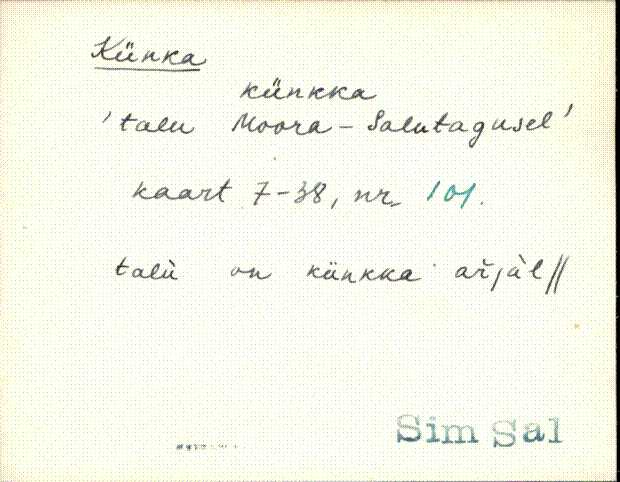 Künka
künkka
'talu Moora-Salutagusel'
kaart 7-38, nr. 101.
talu on künkka arjal//
Sim Sal